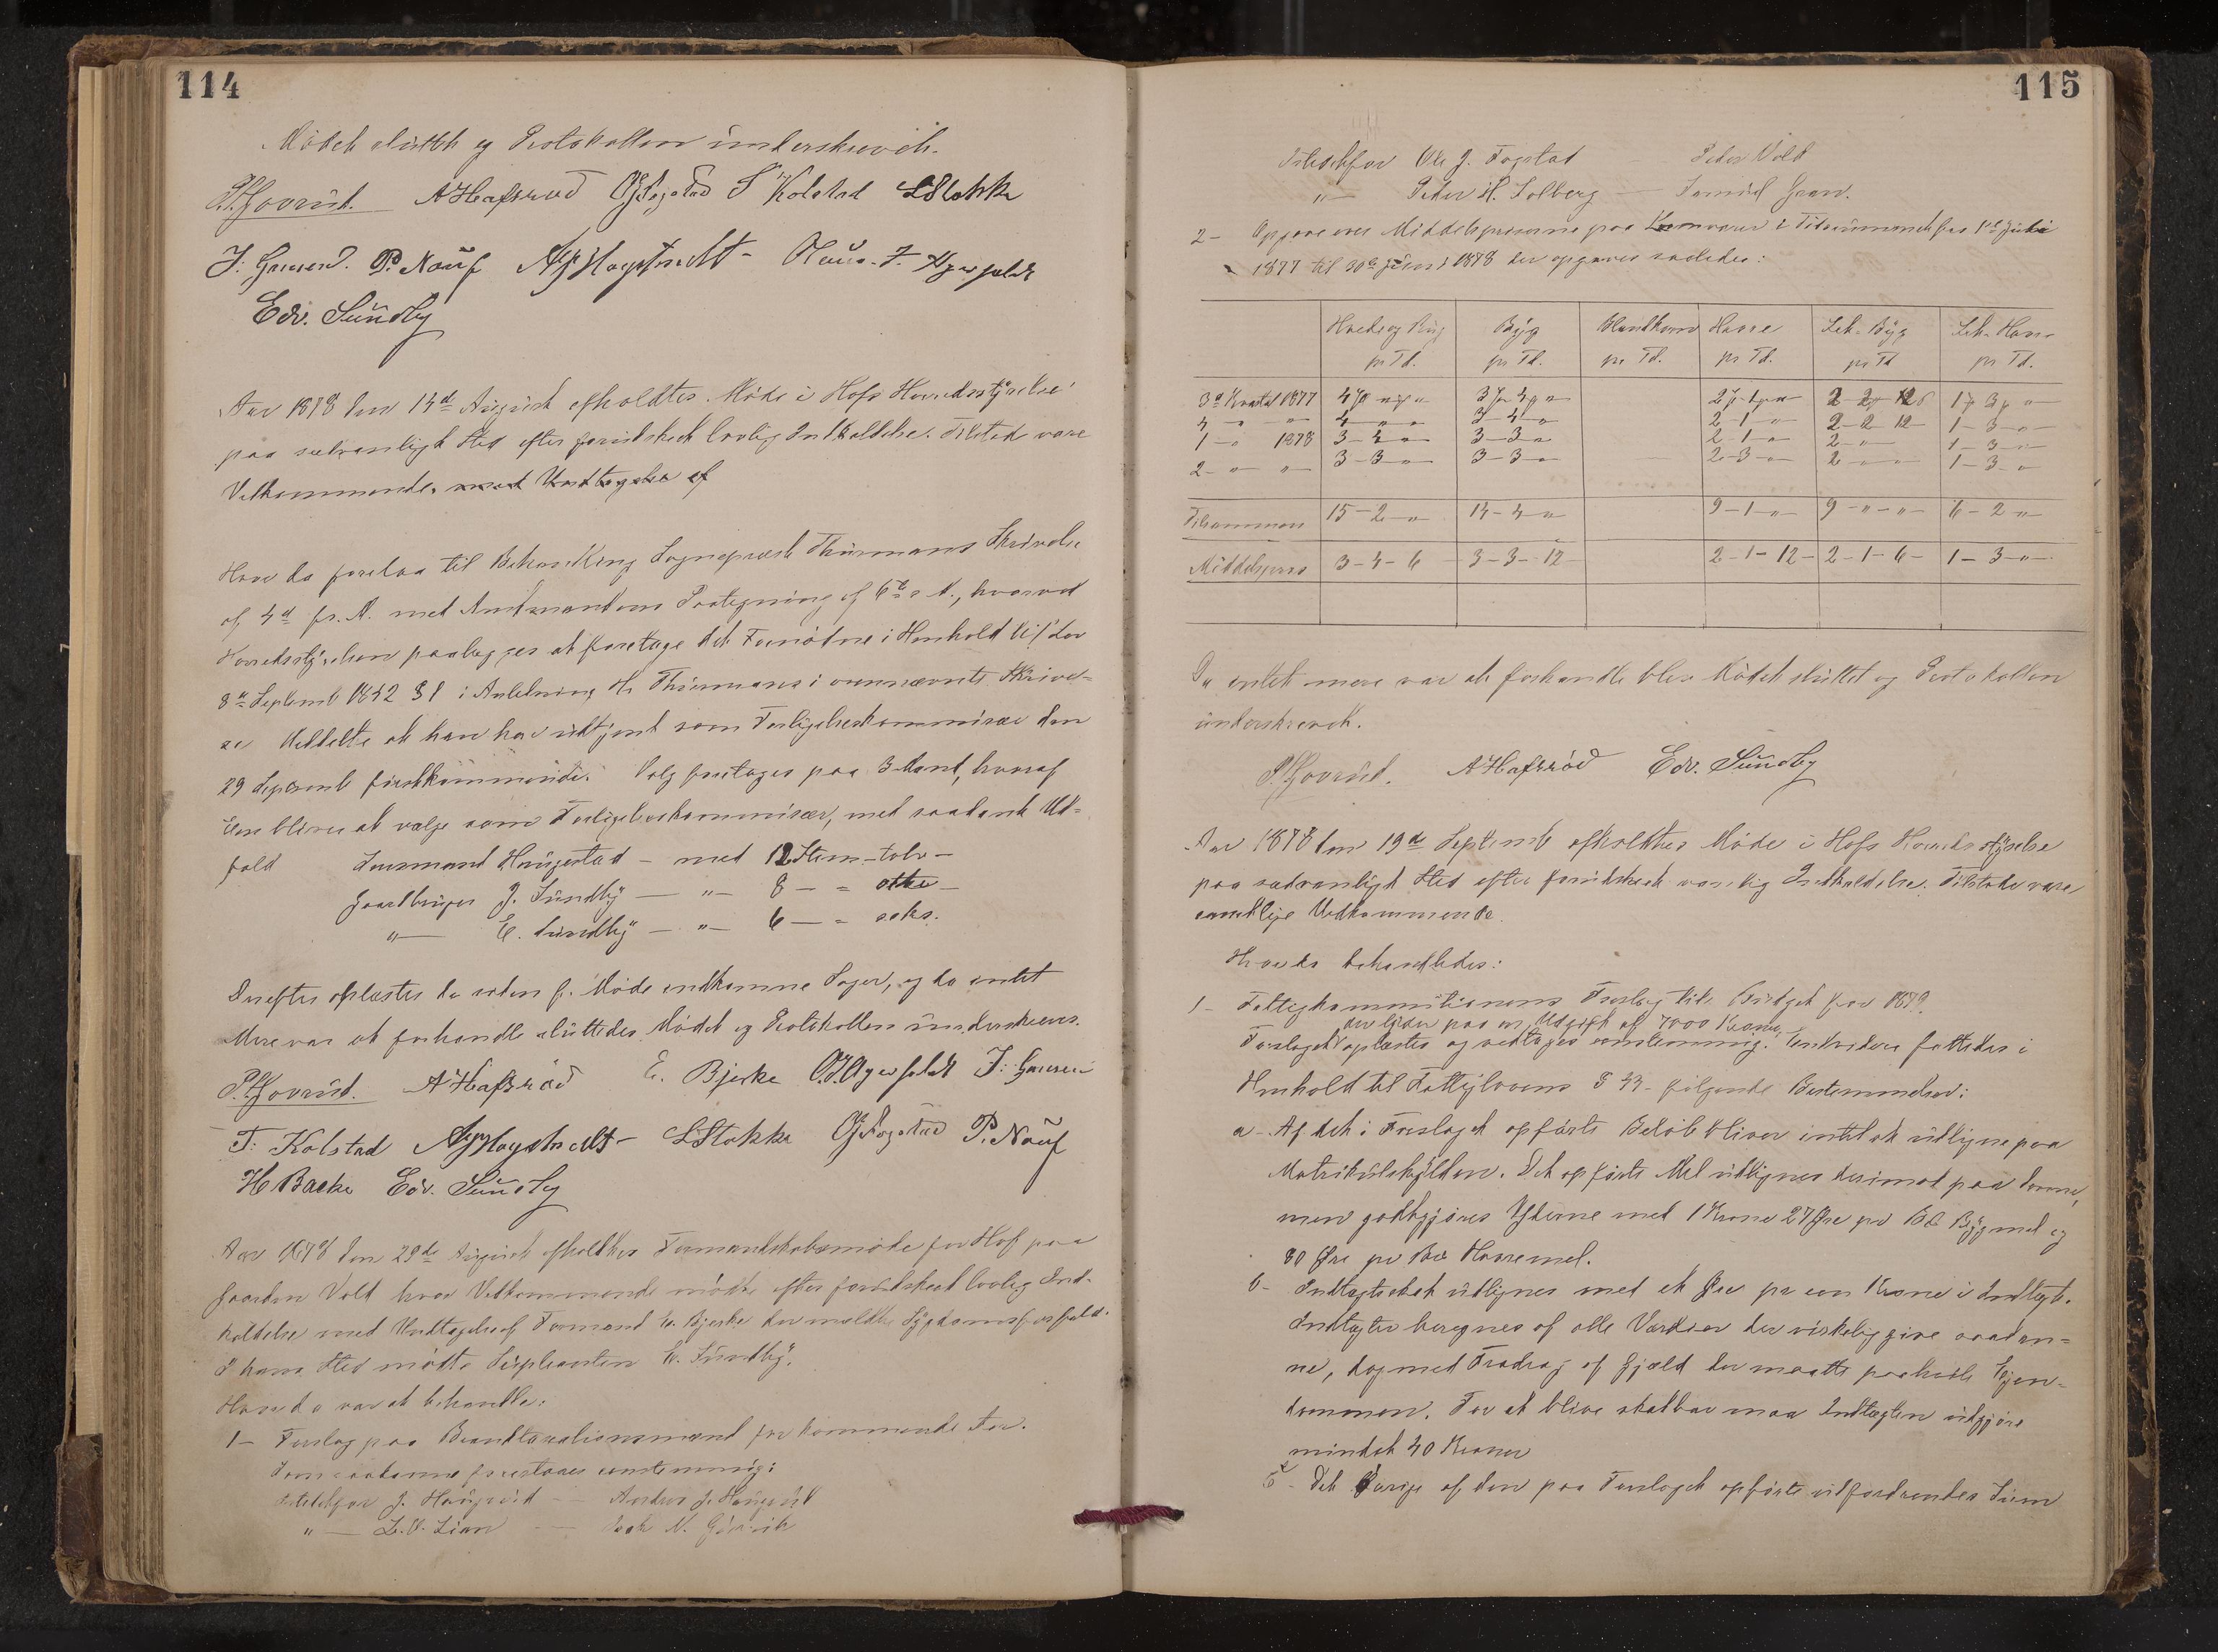 114
Mödet sluttet og Protokollen underskrevet.
P. Hovrud. A Hafsröd OJFogstad T Kolstad LStokke
J: Gruesen. P. Nauf AHagstredt- Olaus. J. Agerfeldt
Edv. Sundby
Aar 1878 den 14de August afholdtes Möde i Hofs Herredsstÿrelse
paa sædvanligt Sted efter forudskeet lovlig Indkaldelse. Tilstede vare
Vedkommende, med Undtagelse af
Hvor da forelaa til Behandling Sognepræst Thurmans Skrivelse
af 4de fs. M. med Amtmandens Paategning af 6te s. M., hvorved
Herredsstÿrelsen paalægges at foretage det Fornödne i Henhold til Lov
8de Septemb 1842 § 1 i Anledning Hr Thurmans i ovennævnte Skrivel=
se Meddelte at han har udtjent som Forligelseskommisær den
29 Septemb förstkommende. Valg foretages paa 3 Mand, hvoraf
Een bliver at vælge som Forligelseskommisær, med saadant Ud=
fald Lensmand Haugestad - med 12 Stem - tolv -
Gaardbruger J. Sundbÿ - " - 8 - = otte -
" - E. Sundbÿ - " - 6 - = seks.
Derefter oplæstes de siden f. Möde indkomne Sager, og da intet
Mere var at forhandle sluttedes Mödet og Protokollen underskreves.
P. Hovrud. A Hafsröd E. Bjerke O.J. Agerfeldt J: Gruesen
T. Kolstad AHagstredt- LStokke OJFogstad P. Nauf
H Backe Edv. Sundby
Aar 1878 den 29de August afholdtes Formandskabsmöde for Hof paa
Gaarden Vold hvor Vedkommende mödte efter forudskeet lovlig Ind-
kaldelse med Undtagelse af Formand E. Bjerke der meldte Sÿgdomsforfald.
I hans Sted mödte Suppleanten E. Sundbÿ.
Hvor da var at behandle:
1- Forslag paa Brandtaxationsmænd for kommende Aar.
Som saadanne foreslaaes eenstemmig:
Istedetfor J. Haugerud - Anders J. Haugerud
" - L. O. Lian -
115
Istedetfor Ole J. Fogstad Peder Vold
" Peder H. Solberg - Samuel Gran.
2- Opgave over Middelpriserne paa Kornvarer i Tidsrummet fra 1ste Juli
1877 til 30te Juni 1878 der opgaves saaledes:
Hvede og Rug Bÿg Blandkorn Havre Sek. Bÿg Sek. Havre
pr Td. pr Td. pr Td. pr Td. pr Td pr Td.
3de Kvartal 1877 4 " " 3 4 " 2 1 " 2 2 12 1 3 "
4 - " " 4 " " 3-4 " 2-1 " 2-2 12 1-3 "
1 - " 1878 3-4 " 3-3 " 2 1 " 2 " 1-3 "
2- " " 3-3 " 3-3 " 2-3 " 2 " " 1-3 "
Tilsammen 15-2 " 14-4 " 9-1 " 9 - " - " 6-2 "
Middelpriis 3-4-6 3-3-12 2-1-12- 2-1-6 1-3- "
Da intet mere var at forhandle blev Mödet sluttet og Protokollen
underskrevet.
P. Hovrud. A Hafsröd Edv. Sundby
Aar 1878 den 19de Septemb afholdtes Möde i Hofs Herredsstÿrelse
paa sædvanligt Sted efter forudskeet Indkaldelse. Tilstede vare
samtlige Vedkommende.
Hvor da behandledes:
1- Fattigkommisionens Forslag til Budget for 1879.
der lÿder paa en Udgift af 7000 Kroner
Forslaget oplæstes og vedtages eenstemmig. Endvidere fattedes i
Henhold til Fattiglovens § 43- fölgende Bestemmelser:
a- Af det i Forslaget opförte Belöb bliver intet at udligne paa
Matrikulskÿlden. Det opförte Mel udlignes derimod paa denne,
men godtgjöres Yderne med 1 Krone 27 Öre pr Bÿgmel og
80 Öre pr Havremel.
b- Indtægtsskat udlignes med et Öre pr een Krone i Indtægt.
Indtægten beregnes af alle Værdier der virkelig give saadan=
ne, dog med Fradrag af Gjæld der maatte paahvile Ejen=
dommen. For at blive skatbar maa Indtægten udgjöre
mindst 40 Kroner
c- Det Övrige af den paa Forslaget opförte udfordrendes Sum